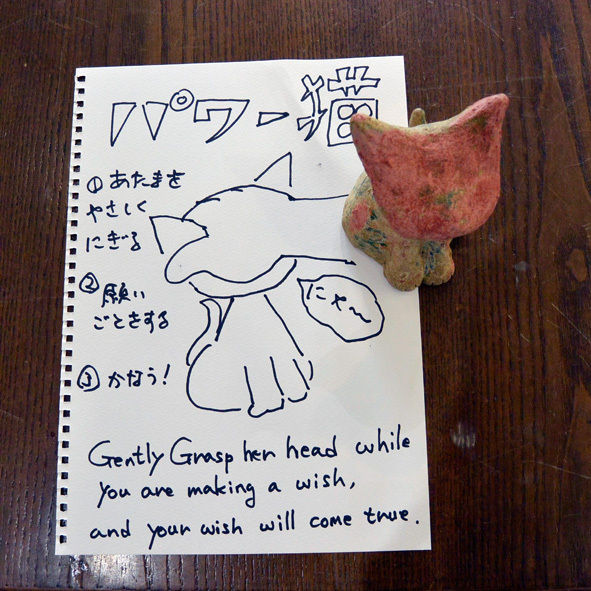 パワー猫
① あたまを
やさしく
にぎる
② 願い
ごとをする
③ かなう!
にゃ〜
Gently Grasp her head while
you are making a wish,
and your wish will come true.